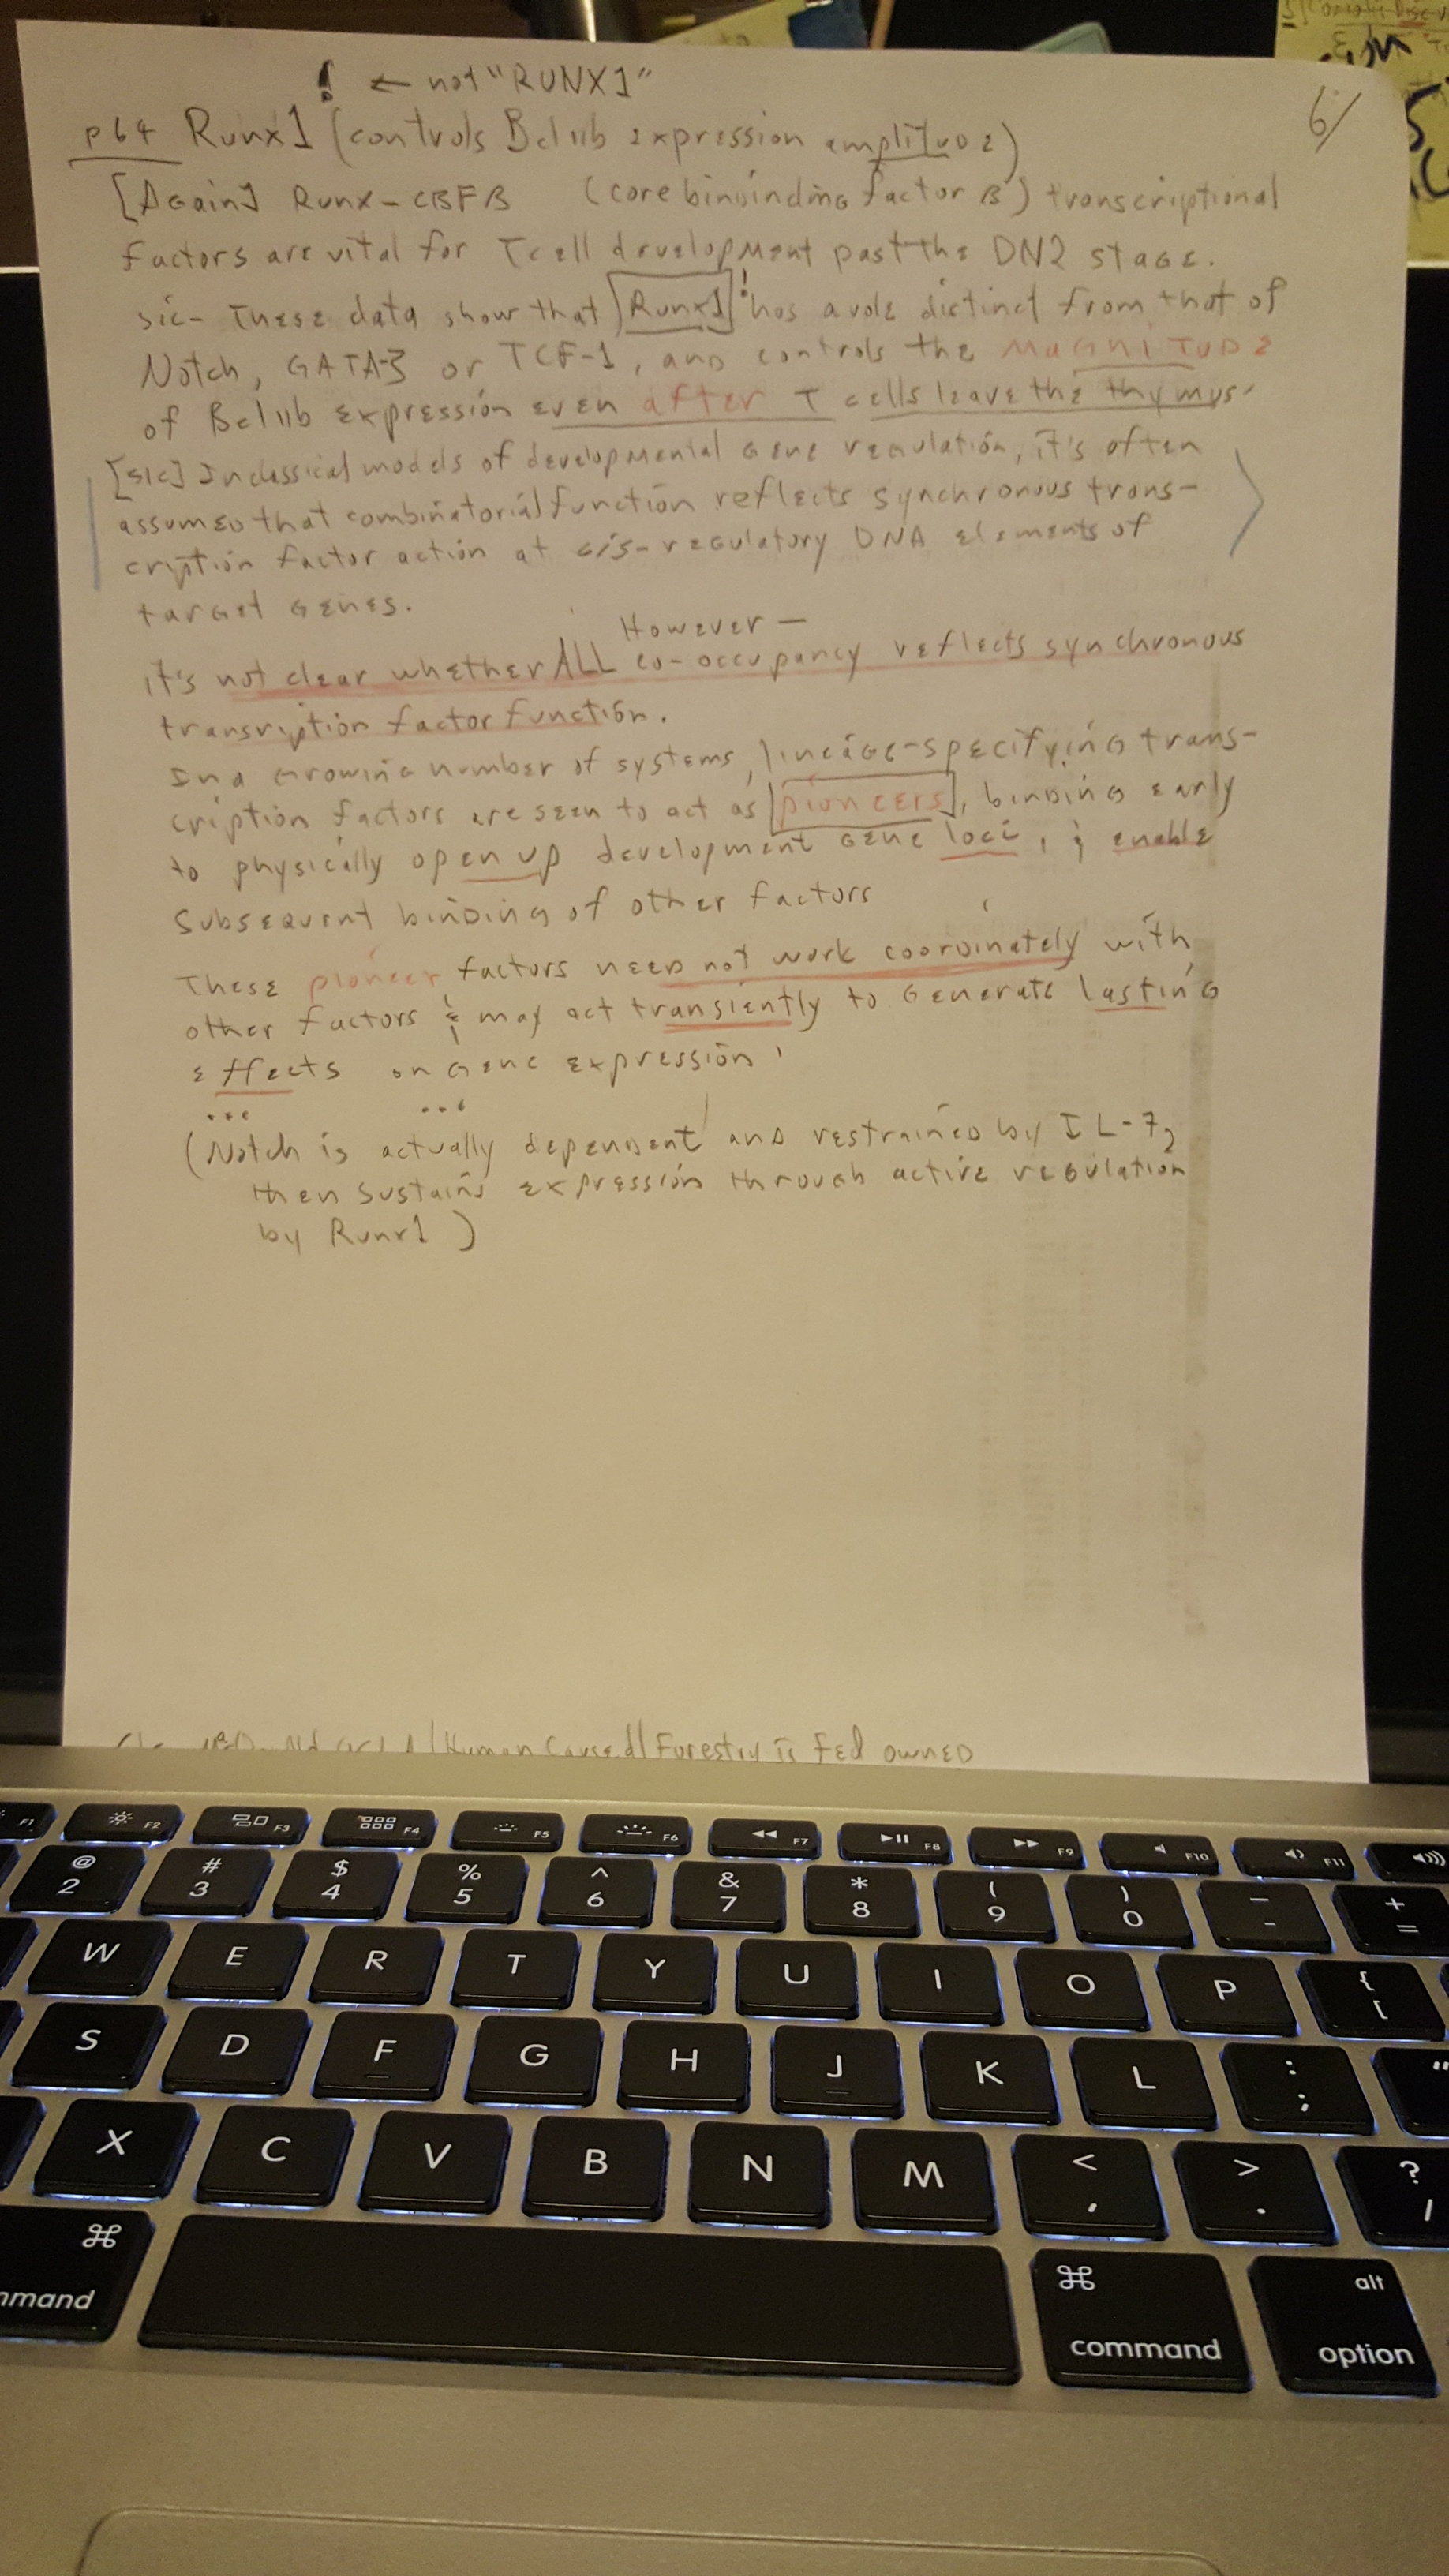 ! ← not "RUNX1"
6/
p64 Runx1 (controls Bcl11b expression amplitude)
[Again] Runx-CBFB (core bininding factor B) transcriptional
factors are vital for T cell development past the DN2 stage.
sic- These data show that Runx1! has a role distinct from that of
Notch, GATA-3 or TCF-1, and controls the MAGNITUDE
of Bcl11b expression even after T cells leave the thymus.
[sic] In classical models of developmental gene regulation, it's often
assumed that combinatorial function reflects synchronous trans-
cription factor action at cis-regulatory DNA elements of
target genes.
However —
it's not clear whether ALL co-occupancy reflects synchronous
transription factor function.
In a growing number of systems, lineage-specifying trans-
cription factors are seen to act as pioneers, binding early
to physically open up development gene loci, & enable
subsequent binding of other factors
These pioneer factors need not work coordinately with
other factors & may act transiently to generate lasting
effects on gene expression
... ...
(Notch is actually dependent and restrained by IL-7,
then sustains expression through active regulation
by Runx1)
Human Caused Forestry is Fed owned
F1 F2 F3 F4 F5 F6 F7 F8 F9 F10 F11
@ # $ % ^ & * ( ) _ +
2 3 4 5 6 7 8 9 0 - =
W E R T Y U I O P { [
S D F G H J K L : ; "
X C V B N M < , > . ? /
⌘ ⌘ alt
mmand command option